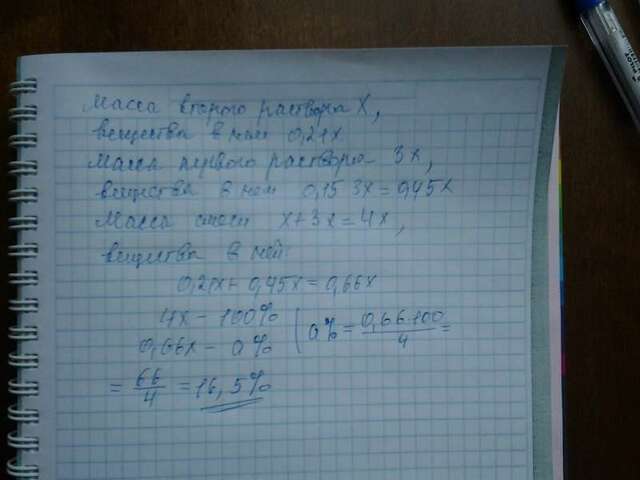 Масса второго раствора X,
вещества в нем 0,21x
Масса первого раствора 3x,
вещества в нем 0,15·3x=0,45x
Масса смеси x+3x=4x,
вещества в ней
0,21x+0,45x=0,66x
4x - 100%
0,66x - a%
( a%= 0,66·100/4 =
= 66/4 = 16,5%